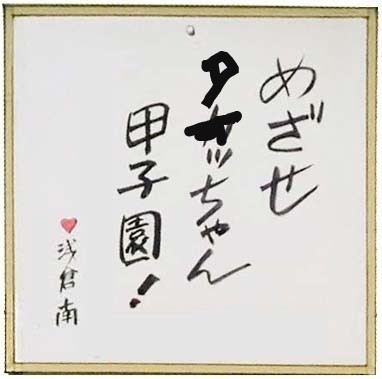 めざせ
タッちゃん
甲子園!
♥浅倉南